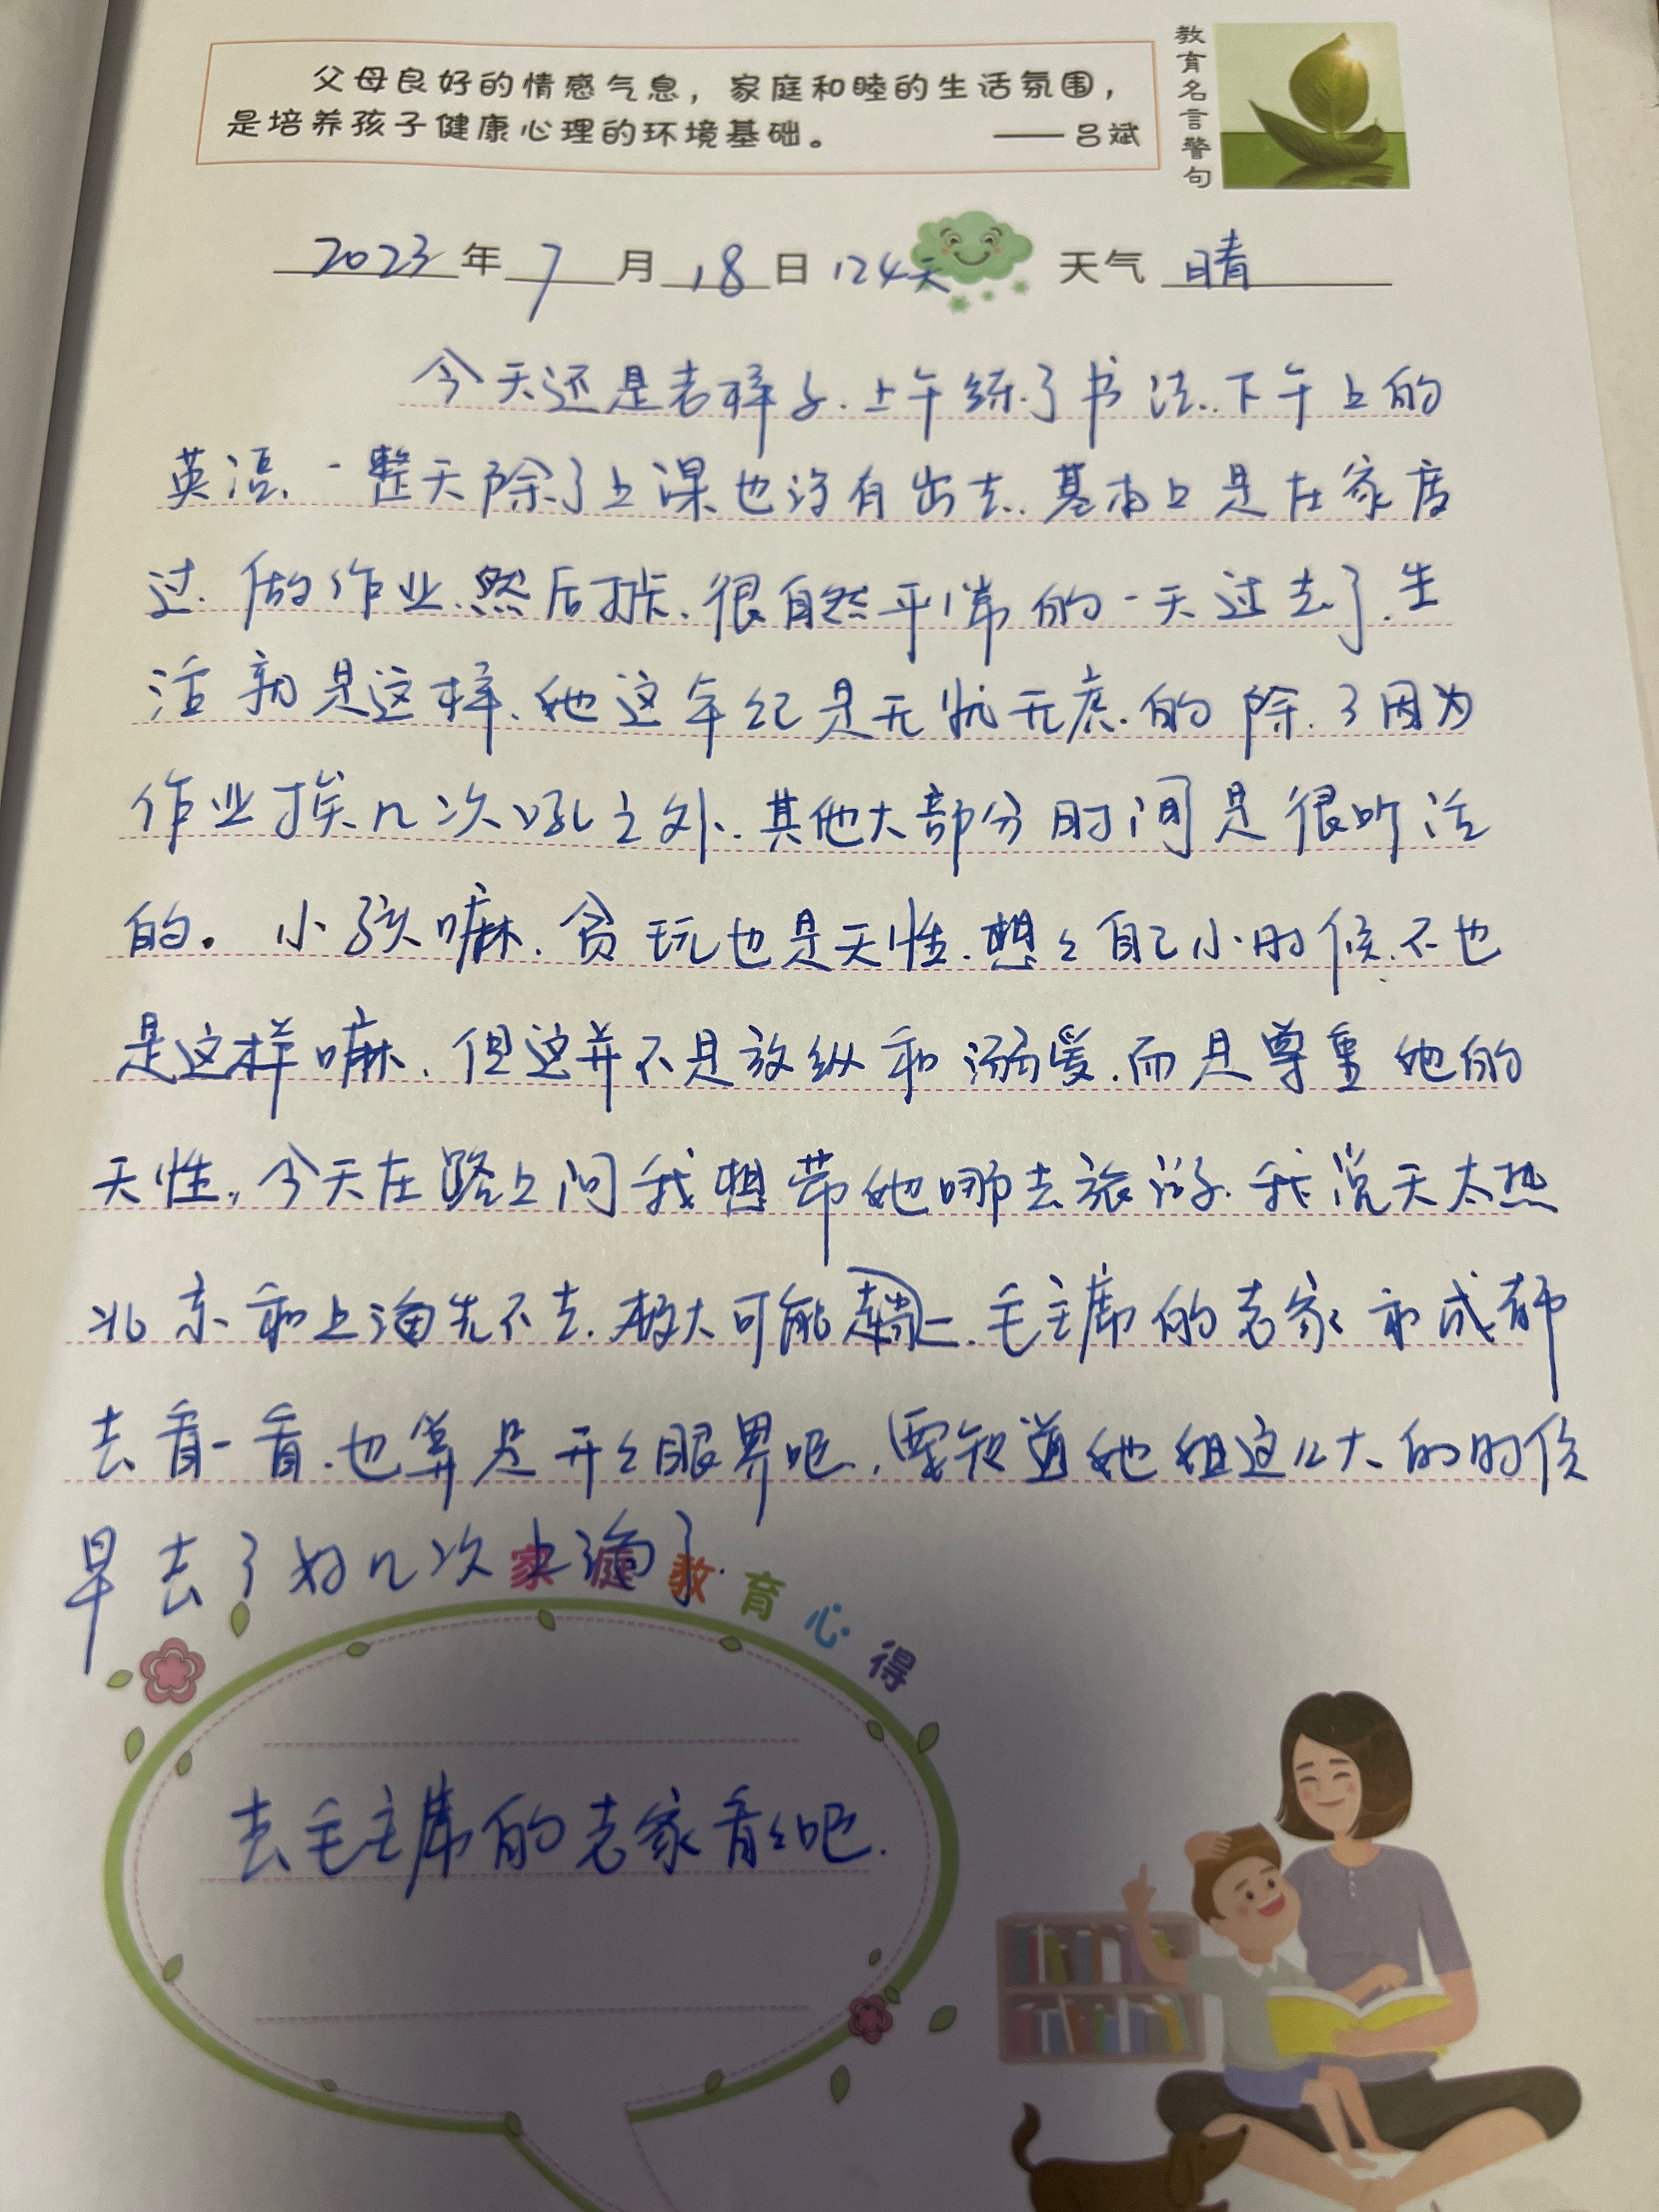 父母良好的情感气息，家庭和睦的生活氛围，
是培养孩子健康心理的环境基础。 ——吕斌
教育名言警句
2023年7月18日 124天 天气 晴
今天还是老样子.上午练了书法.下午上的
英语.一整天除了上课也没有出去.基本上是在家度
过.做作业.然后.很自然平常的一天过去了.生
活就是这样.她这年纪是无忧无虑.的除.了因为
作业挨几次吼之外.其他大部分时间是很听话
的。小孩嘛.贪玩也是天性.想々自己小时候.不也
是这样嘛.但这并不是放纵和溺爱.而是尊重她的
天性。今天在路上问我想带她哪去旅游.我说天太热
北京和上海先不去.极大可能.毛主席的老家和成都
去看一看.也算是开々眼界吧.要知道她姐这么大的时候
早去了好几次上海了.
家庭教育心得
去毛主席的老家看々吧.